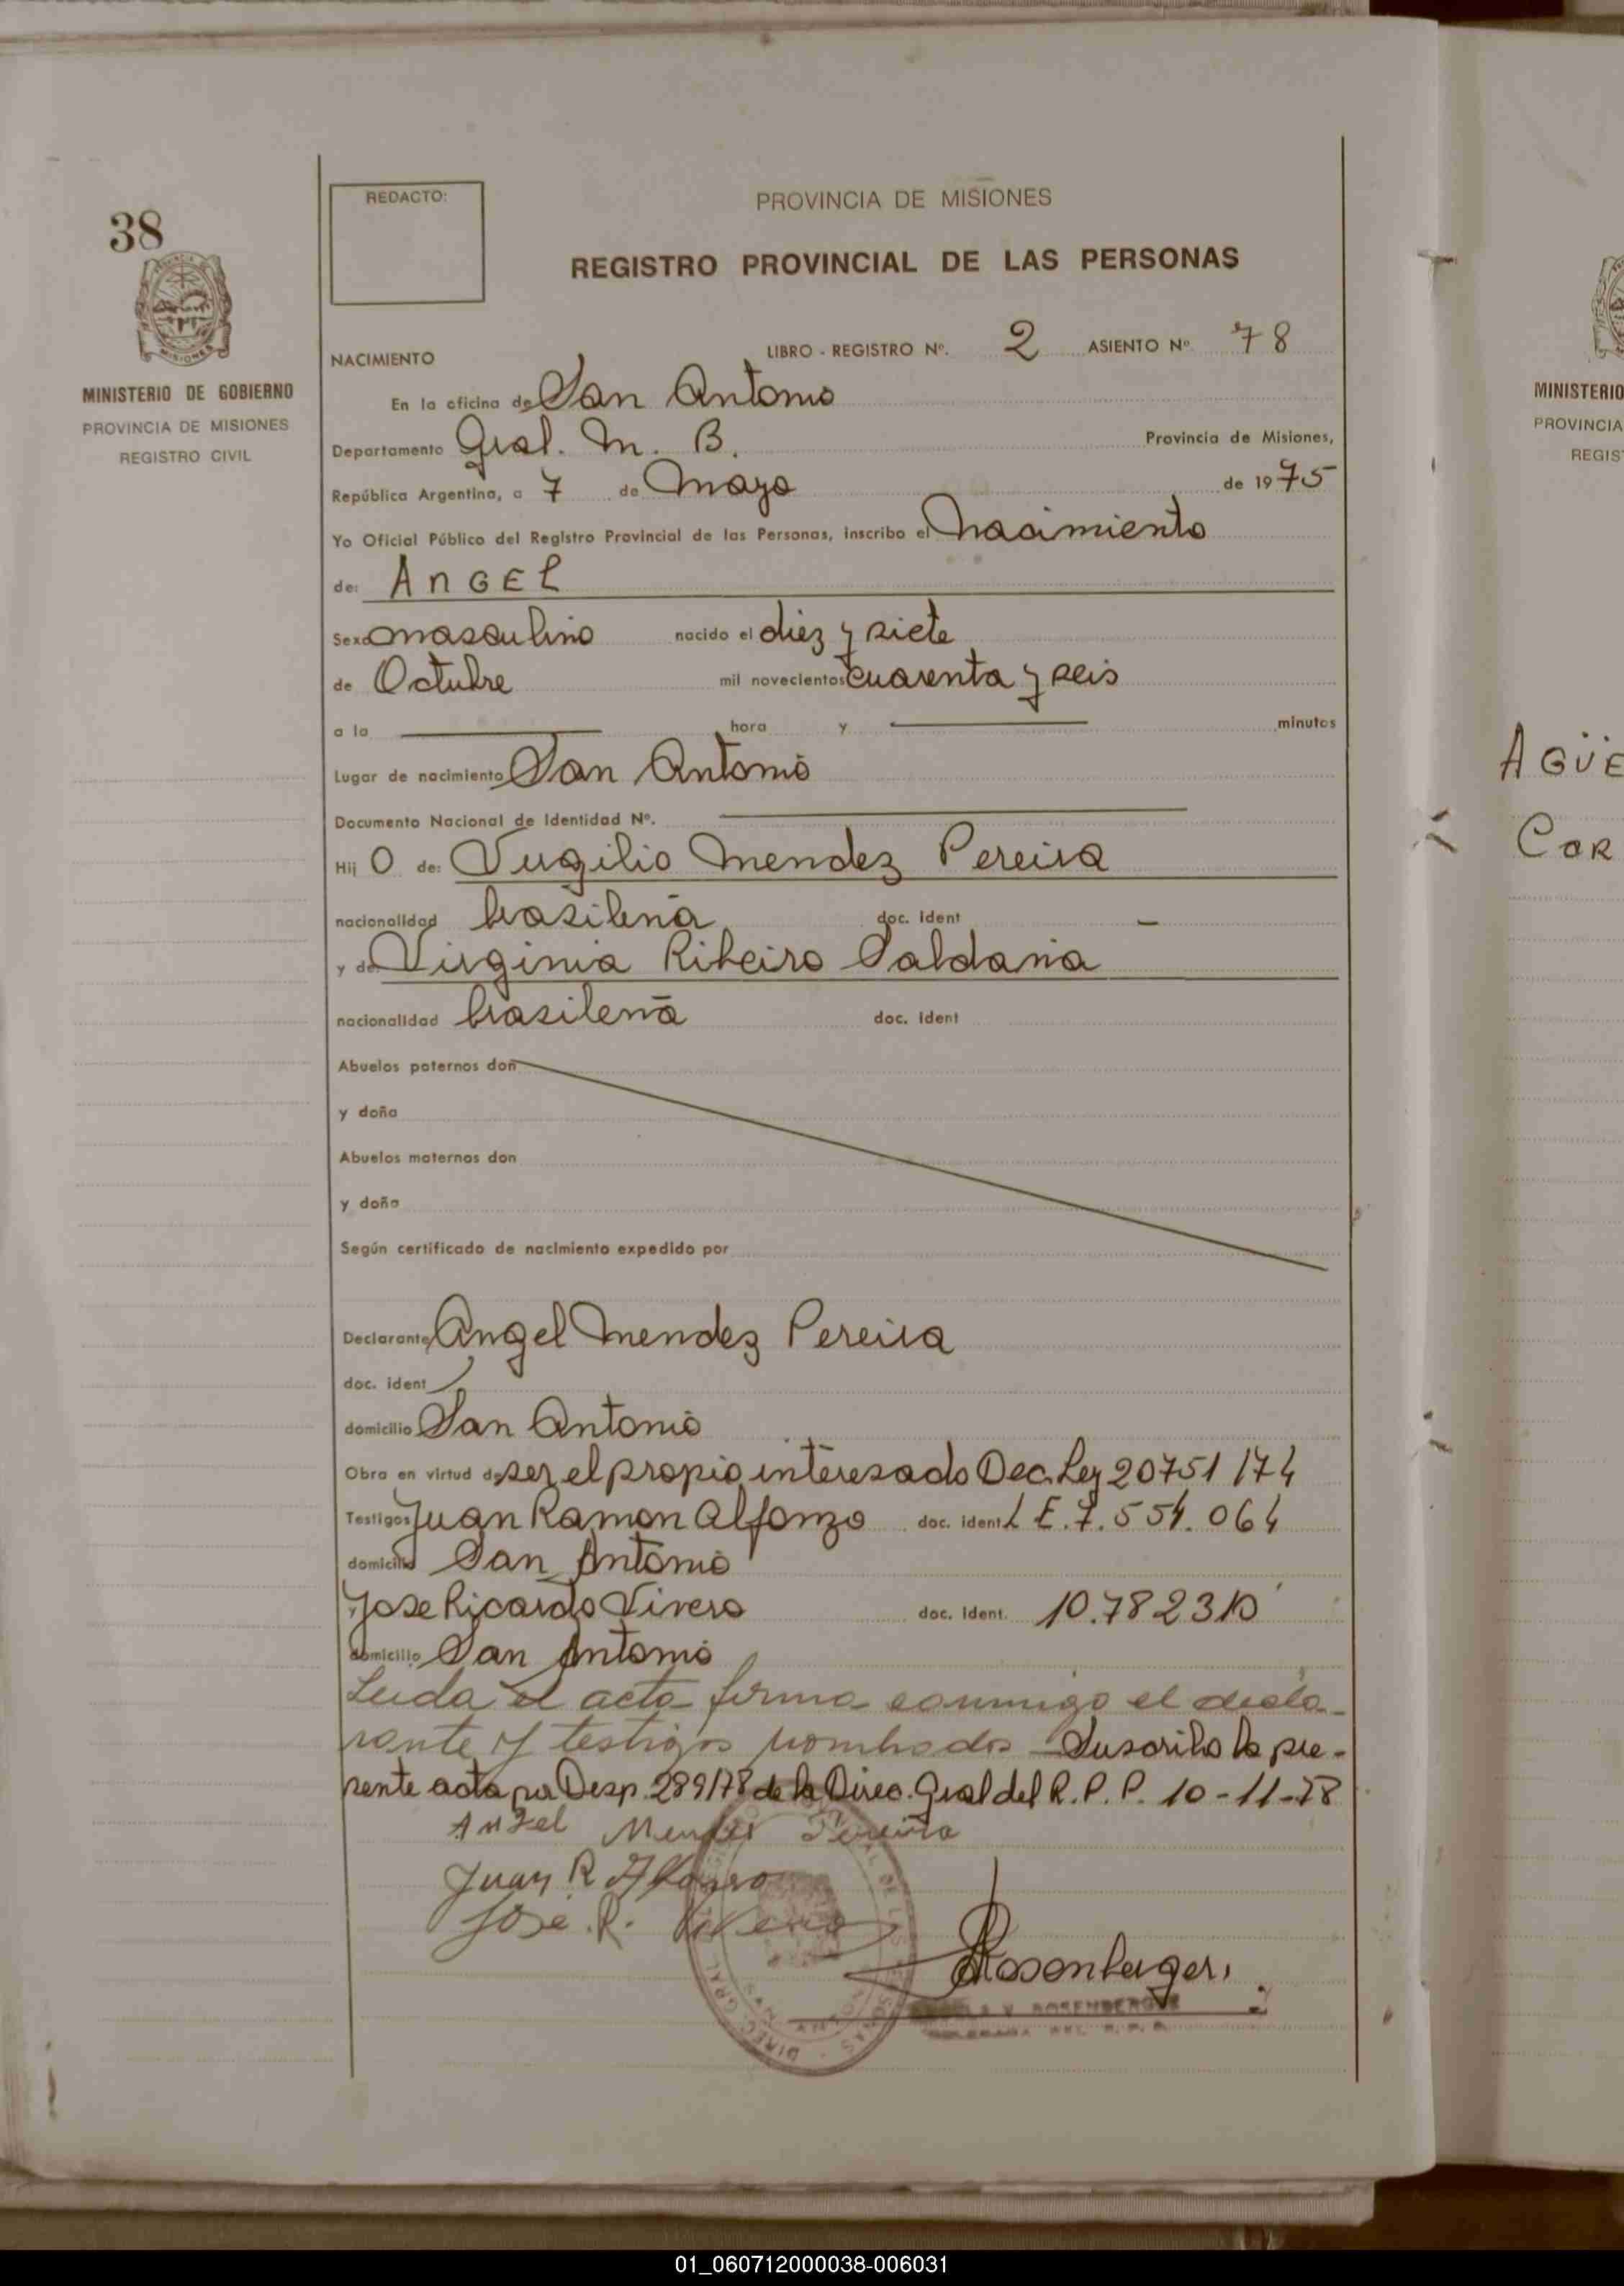 38
MINISTERIO DE GOBIERNO
PROVINCIA DE MISIONES
REGISTRO CIVIL
REDACTO:
PROVINCIA DE MISIONES
REGISTRO PROVINCIAL DE LAS PERSONAS
NACIMIENTO LIBRO - REGISTRO Nº. 2 ASIENTO Nº 78
En la oficina de San Antonio
Departamento Gral. M. B. Provincia de Misiones,
República Argentina, a 7 de Mayo de 1975
Yo Oficial Público del Registro Provincial de las Personas, inscribo el Nacimiento
de: ANGEL
Sexo masculino nacido el diez y siete
de Octubre mil novecientos cuarenta y seis
a la hora y minutos
Lugar de nacimiento San Antonio
Documento Nacional de Identidad Nº.
Hij o de: Virgilio Mendez Pereira
nacionalidad brasileña doc. ident —
y de Virginia Ribeiro Saldaña
nacionalidad brasileña doc. ident
Abuelos paternos don
y doña
Abuelos maternos don
y doña
Según certificado de nacimiento expedido por
Declarante Angel Mendez Pereira
doc. ident
domicilio San Antonio
Obra en virtud de ser el propio interesado Dec. Ley 20751/74
Testigos Juan Ramon Alfonzo doc. ident L E. 7.554.064
domicilio San Antonio
y Jose Ricardo Vivero doc. ident. 10.782310
domicilio San Antonio
Leida el acta firma conmigo el decla-
rante y testigos nombrados Suscribo la pre-
sente acta por Desp. 289/78 de la Direc. Gral del R. P. P. 10-11-78
Angel Mendez Pereira
Juan R Alfonzo
Jose. R. Vivero
Rosenberger
ROSENBERGER
MINISTERIO
PROVINCIA
REGIS
AGÜE
COR
01_060712000038-006031